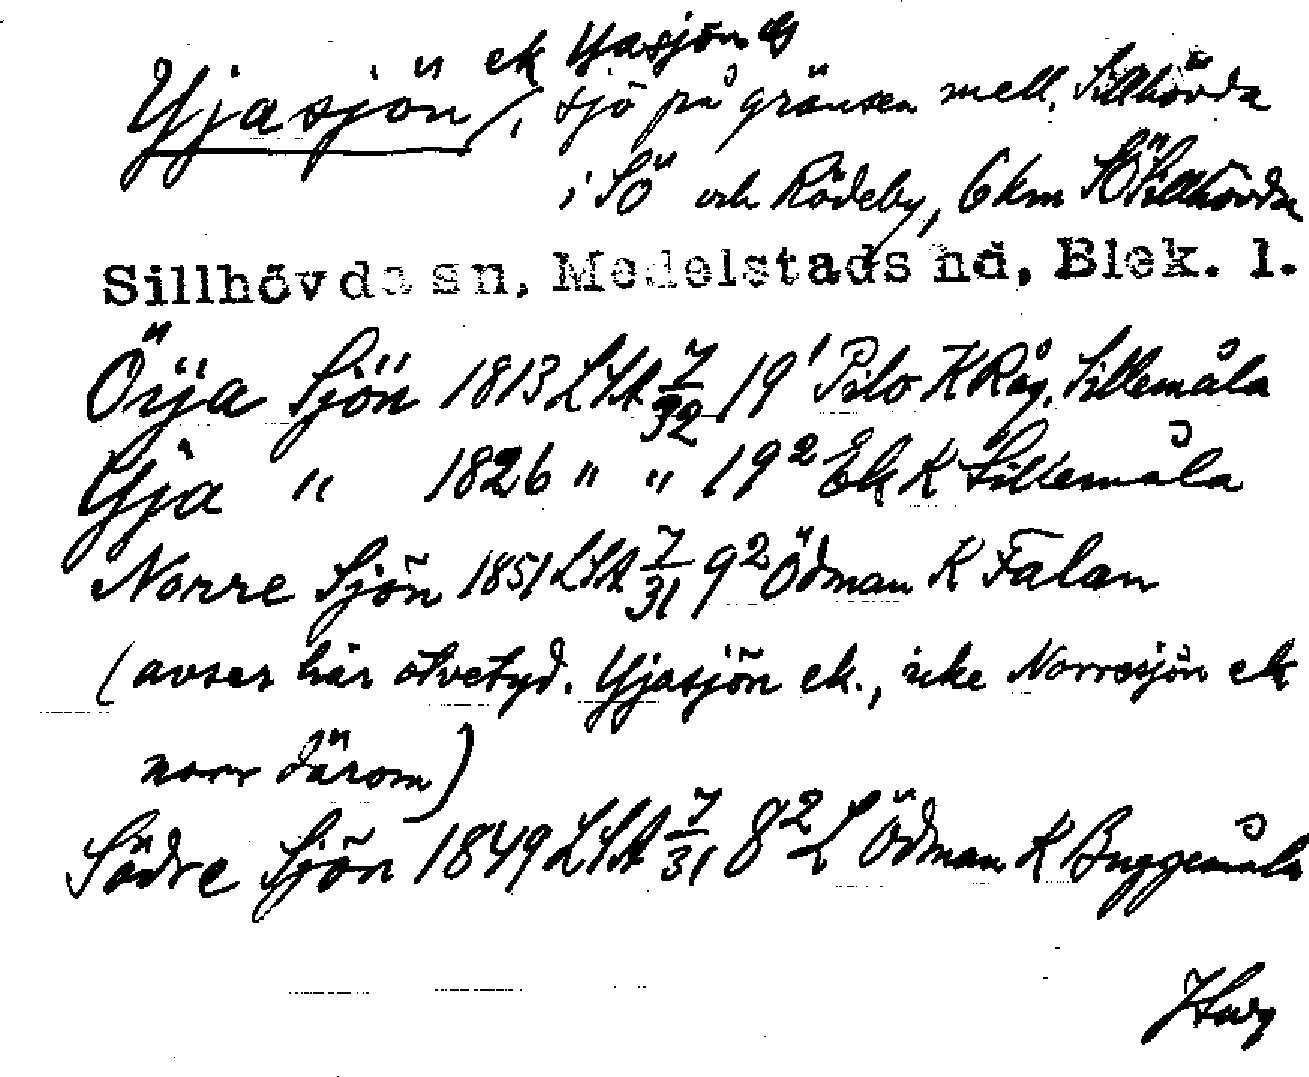 Yjasjön, ek Yasjön
sjö på gränsen mell. Sillhövda
i SÖ och Rödeby, 6 km SÖ Sillhövda
Sillhövda sn, Medelstads hd, Blek. l.
Öija Sjön 1813 LSA 7/32 19¹ Pilo K Råg. Sillemåla
Yja " 1826 " " 19² Ek K Sillemåla
Norre Sjön 1851 LSA 7/31 9² Ödman K Falan
(avser här otvetyd. Yjasjön ek., icke Norresjön ek
norr därom)
Södre Sjön 1849 LSA 7/31 8² Ödman K Buggemåla